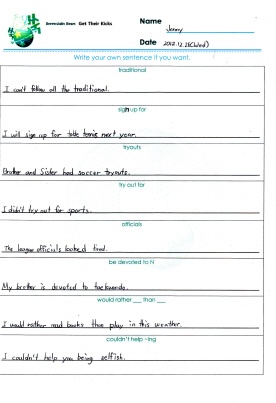 Berenstain Bears Get Their Kicks
Name Jenny
Date 2012.12.26(Wed)
Write your own sentence if you want.
traditional
I can't follow all the traditional.
sign up for
I will sign up for table tennis next year.
tryouts
Brother and Sister had soccer tryouts.
try out for
I didn't try out for sports.
officials
The league officials looked tired.
be devoted to N
My brother is devoted to taekwondo.
would rather ___ than ___
I would rather read books than play in this weather.
couldn't help ~ing
I couldn't help you being selfish.